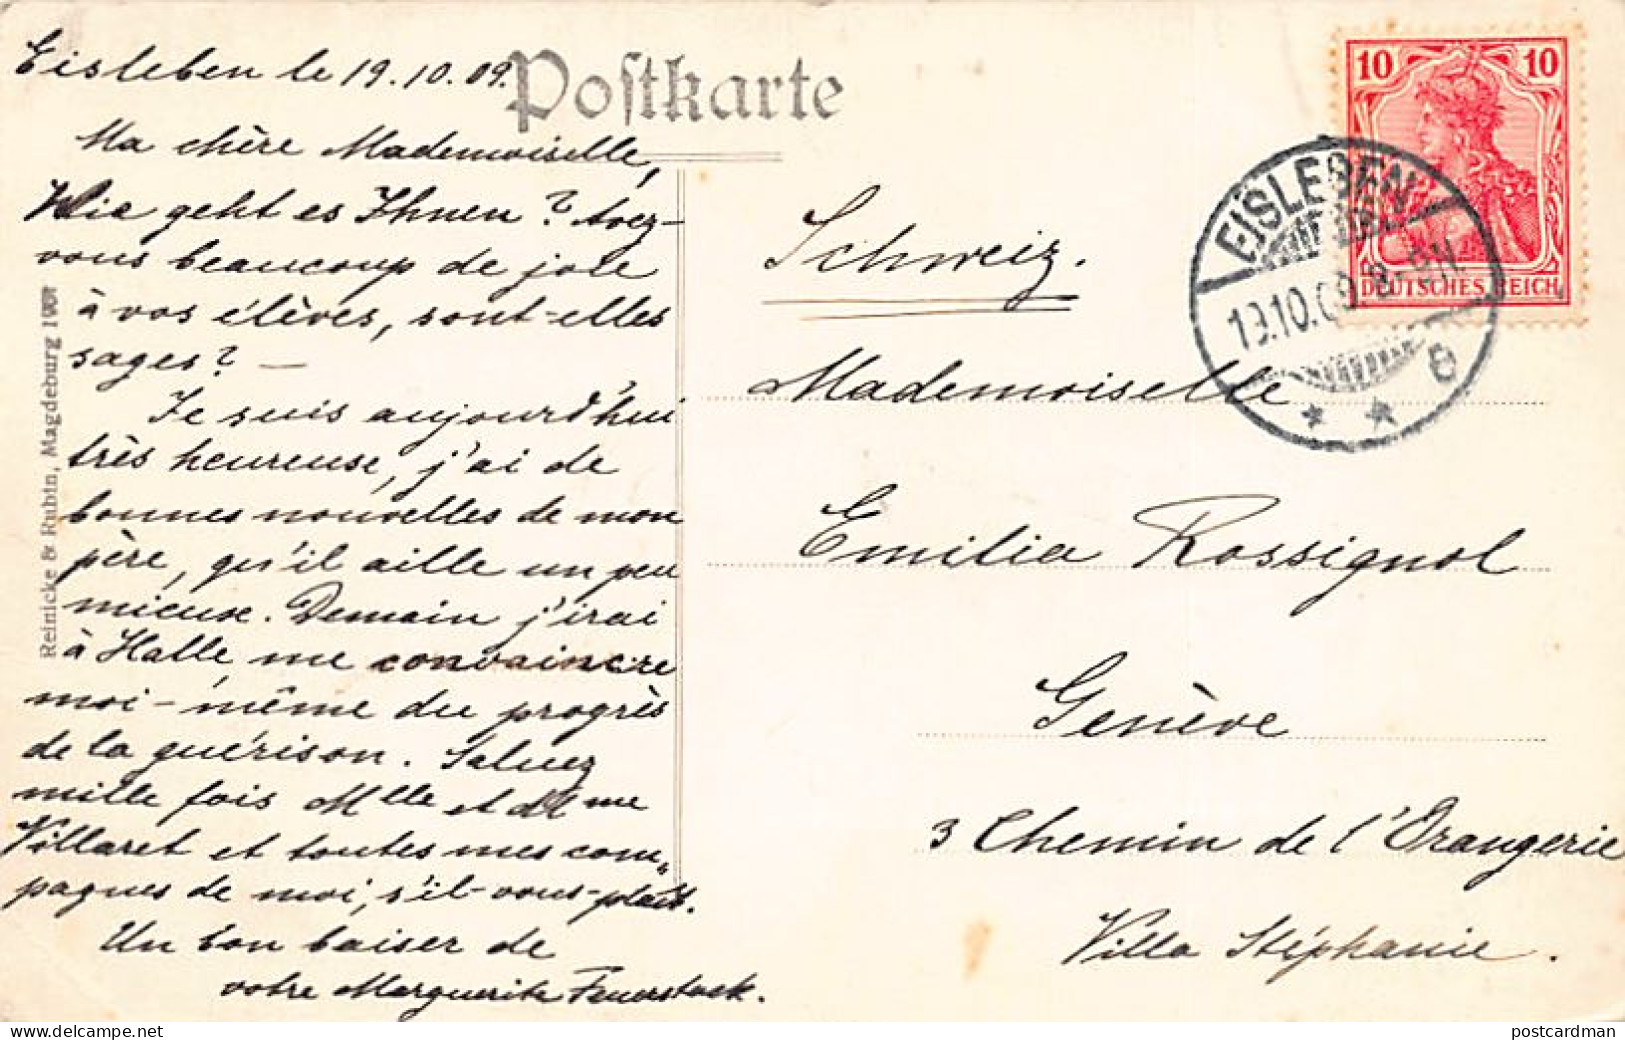 Postkarte
Eisleben le 19.10.09.
Ma chère Mademoiselle,
Wie geht es Ihnen? Avez-
vous beaucoup de joie
à vos élèves, sont-elles
sages? —
Je suis aujourd'hui
très heureuse, j'ai de
bonnes nouvelles de mon
père, qu'il aille un peu
mieux. Demain j'irai
à Halle, me convaincre
moi-même du progrès
de la guérison. Saluez
mille fois Mlle et Mme
Villaret et toutes mes com-
pagnes de moi, s'il-vous-plaît.
Un bon baiser de
votre Marguerite Feuerstack.
Reinicke & Rubin, Magdeburg
10 10
DEUTSCHES REICH
EISLEBEN
19.10.09 8-9N
* *
Schweiz.
Mademoiselle
Emilia Rossignol
Genève
3 Chemin de l'Orangerie
Villa Stéphanie.
www.delcampe.net
postcardman